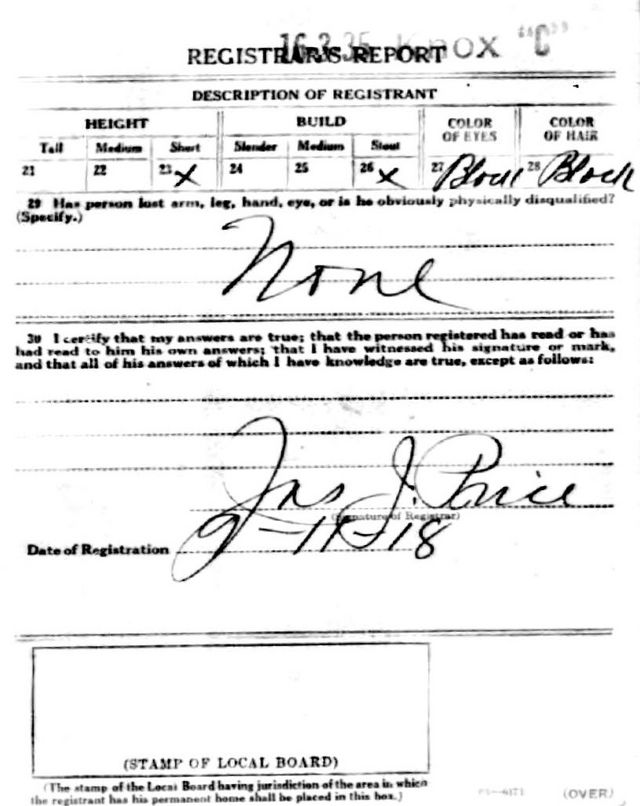 16-3-35 Knox "C"
REGISTRAR'S REPORT
DESCRIPTION OF REGISTRANT
HEIGHT BUILD COLOR OF EYES COLOR OF HAIR
Tall Medium Short Slender Medium Stout
21 22 23 x 24 25 26 x 27 28 Black
29 Has person lost arm, leg, hand, eye, or is he obviously physically disqualified?
(Specify.)
None
30 I certify that my answers are true; that the person registered has read or has
had read to him his own answers; that I have witnessed his signature or mark,
and that all of his answers of which I have knowledge are true, except as follows:
Jas J. Price
(Signature of Registrar)
Date of Registration 9-11-18
(STAMP OF LOCAL BOARD)
(The stamp of the Local Board having jurisdiction of the area in which
the registrant has his permanent home shall be placed in this box.)
(OVER)